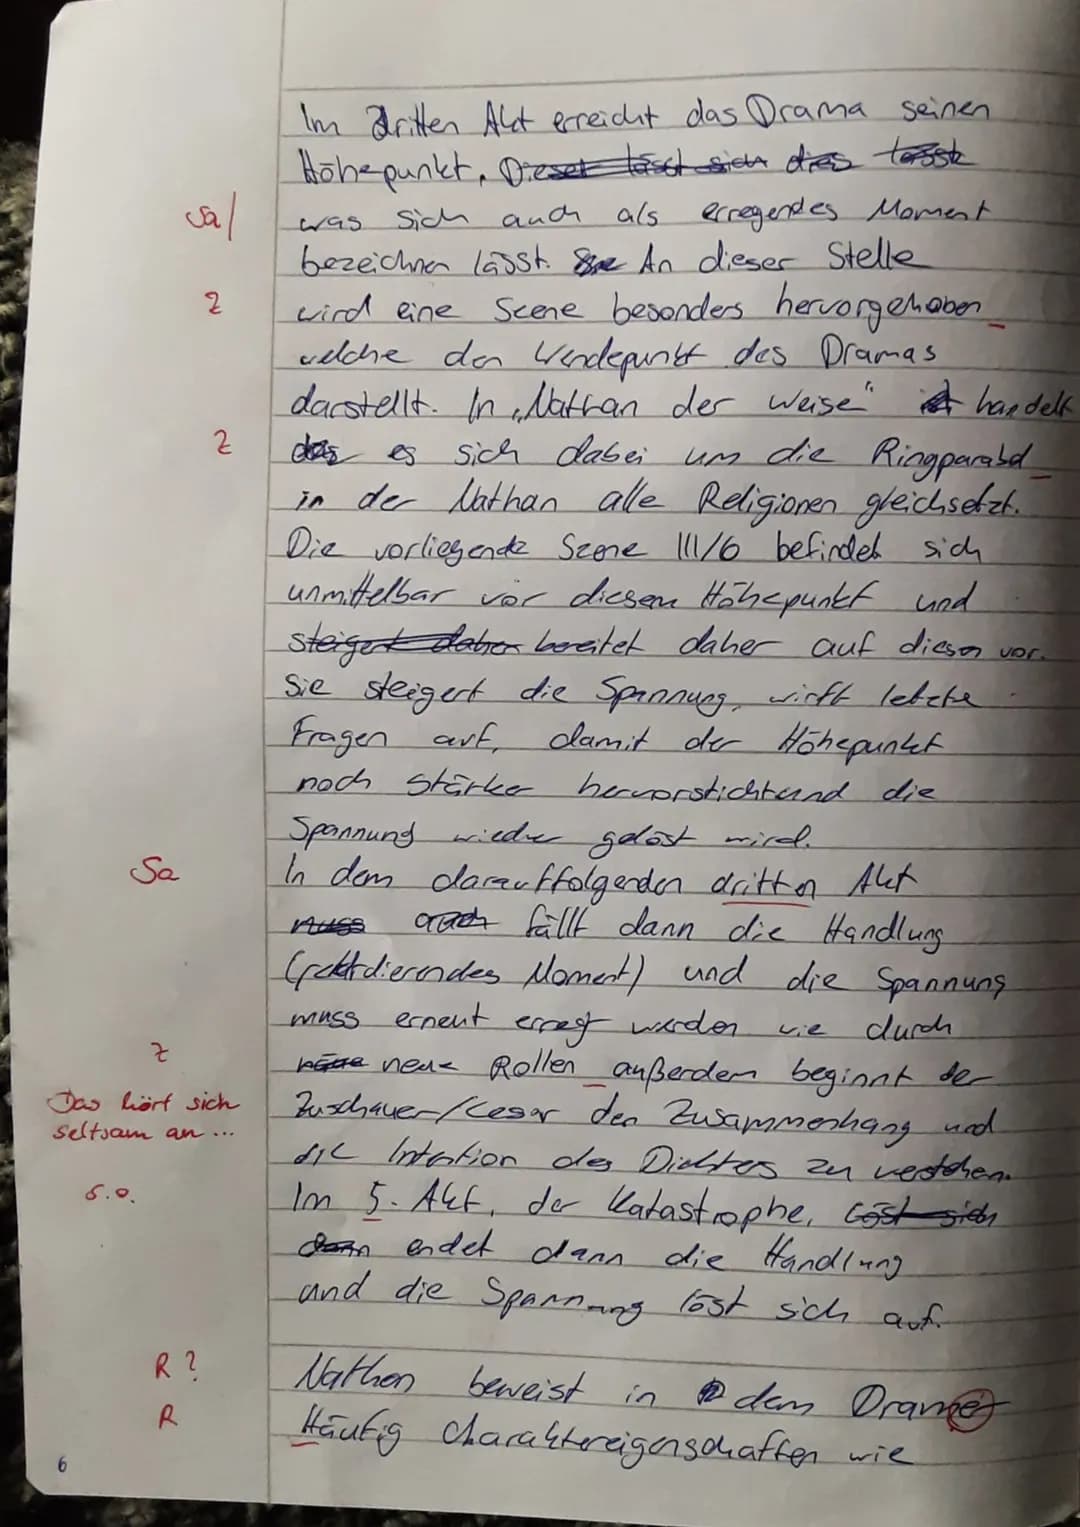 Im dritten Akt erreicht das Drama seinen
Höhepunkt, Dieser lässt sich dies lässt
Sa/ was sich auch als erregendes Moment
bezeichnen lässt. An dieser Stelle
Z wird eine Scene besonders hervorgehoben
welche den Wendepunkt des Dramas
darstellt. In „Nathan der Weise" ist handelt
Z das es sich dabei um die Ringparabel
in der Nathan alle Religionen gleichsetzt.
Die vorliegende Szene III/6 befindet sich
unmittelbar vor diesem Höhepunkt und
steigert daher bereitet daher auf diesen vor.
Sie steigert die Spannung, wirft letzte
Fragen auf, damit der Höhepunkt
noch stärker hervorsticht und die
Spannung wieder gelöst wird.
Sa In dem darauffolgenden dritten Akt
muss auch fällt dann die Handlung
(retardierendes Moment) und die Spannung
muss erneut erregt werden wie durch
Z neue Rollen außerdem beginnt der
Das hört sich Zuschauer/Leser den Zusammenhang und
seltsam an ... die Intention des Dichters zu verstehen.
s.o. Im 5. Akt, der Katastrophe, löst sich
dann endet dann die Handlung
und die Spannung löst sich auf.
R? Nathan beweist in dem Drama
R Häufig Charaktereigenschaften wie
6